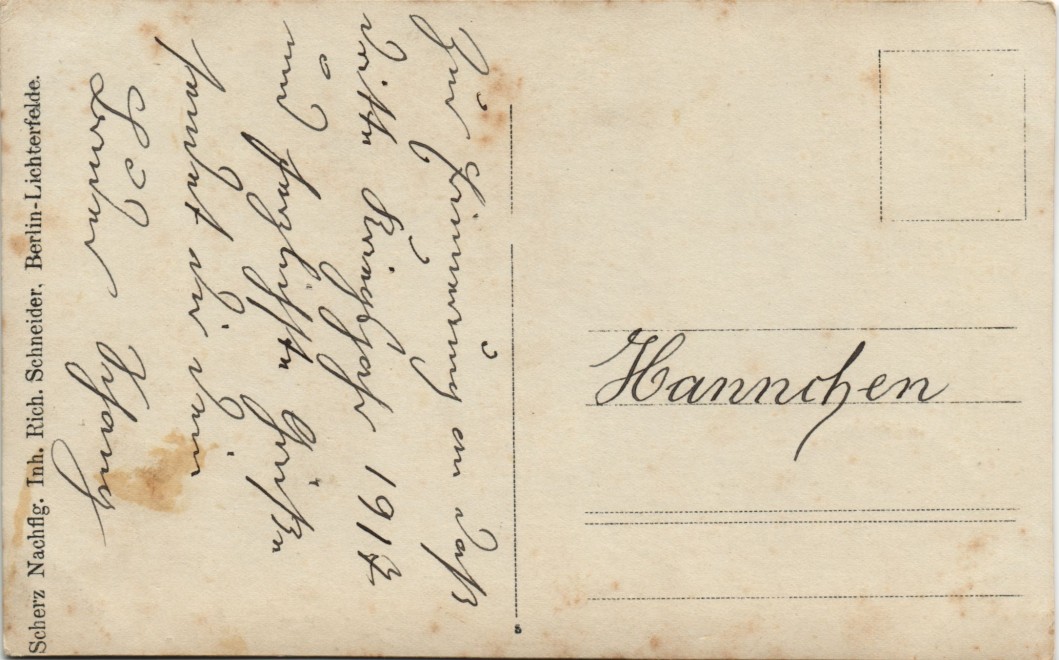 Zur Erinnerung an daß
dritte Kriegsjahr 1917
und herzlichsten Grüßen
sendet dir dein
Bruder
Hannchen
Scherz Nachflg. Inh. Rich. Schneider, Berlin-Lichterfelde.